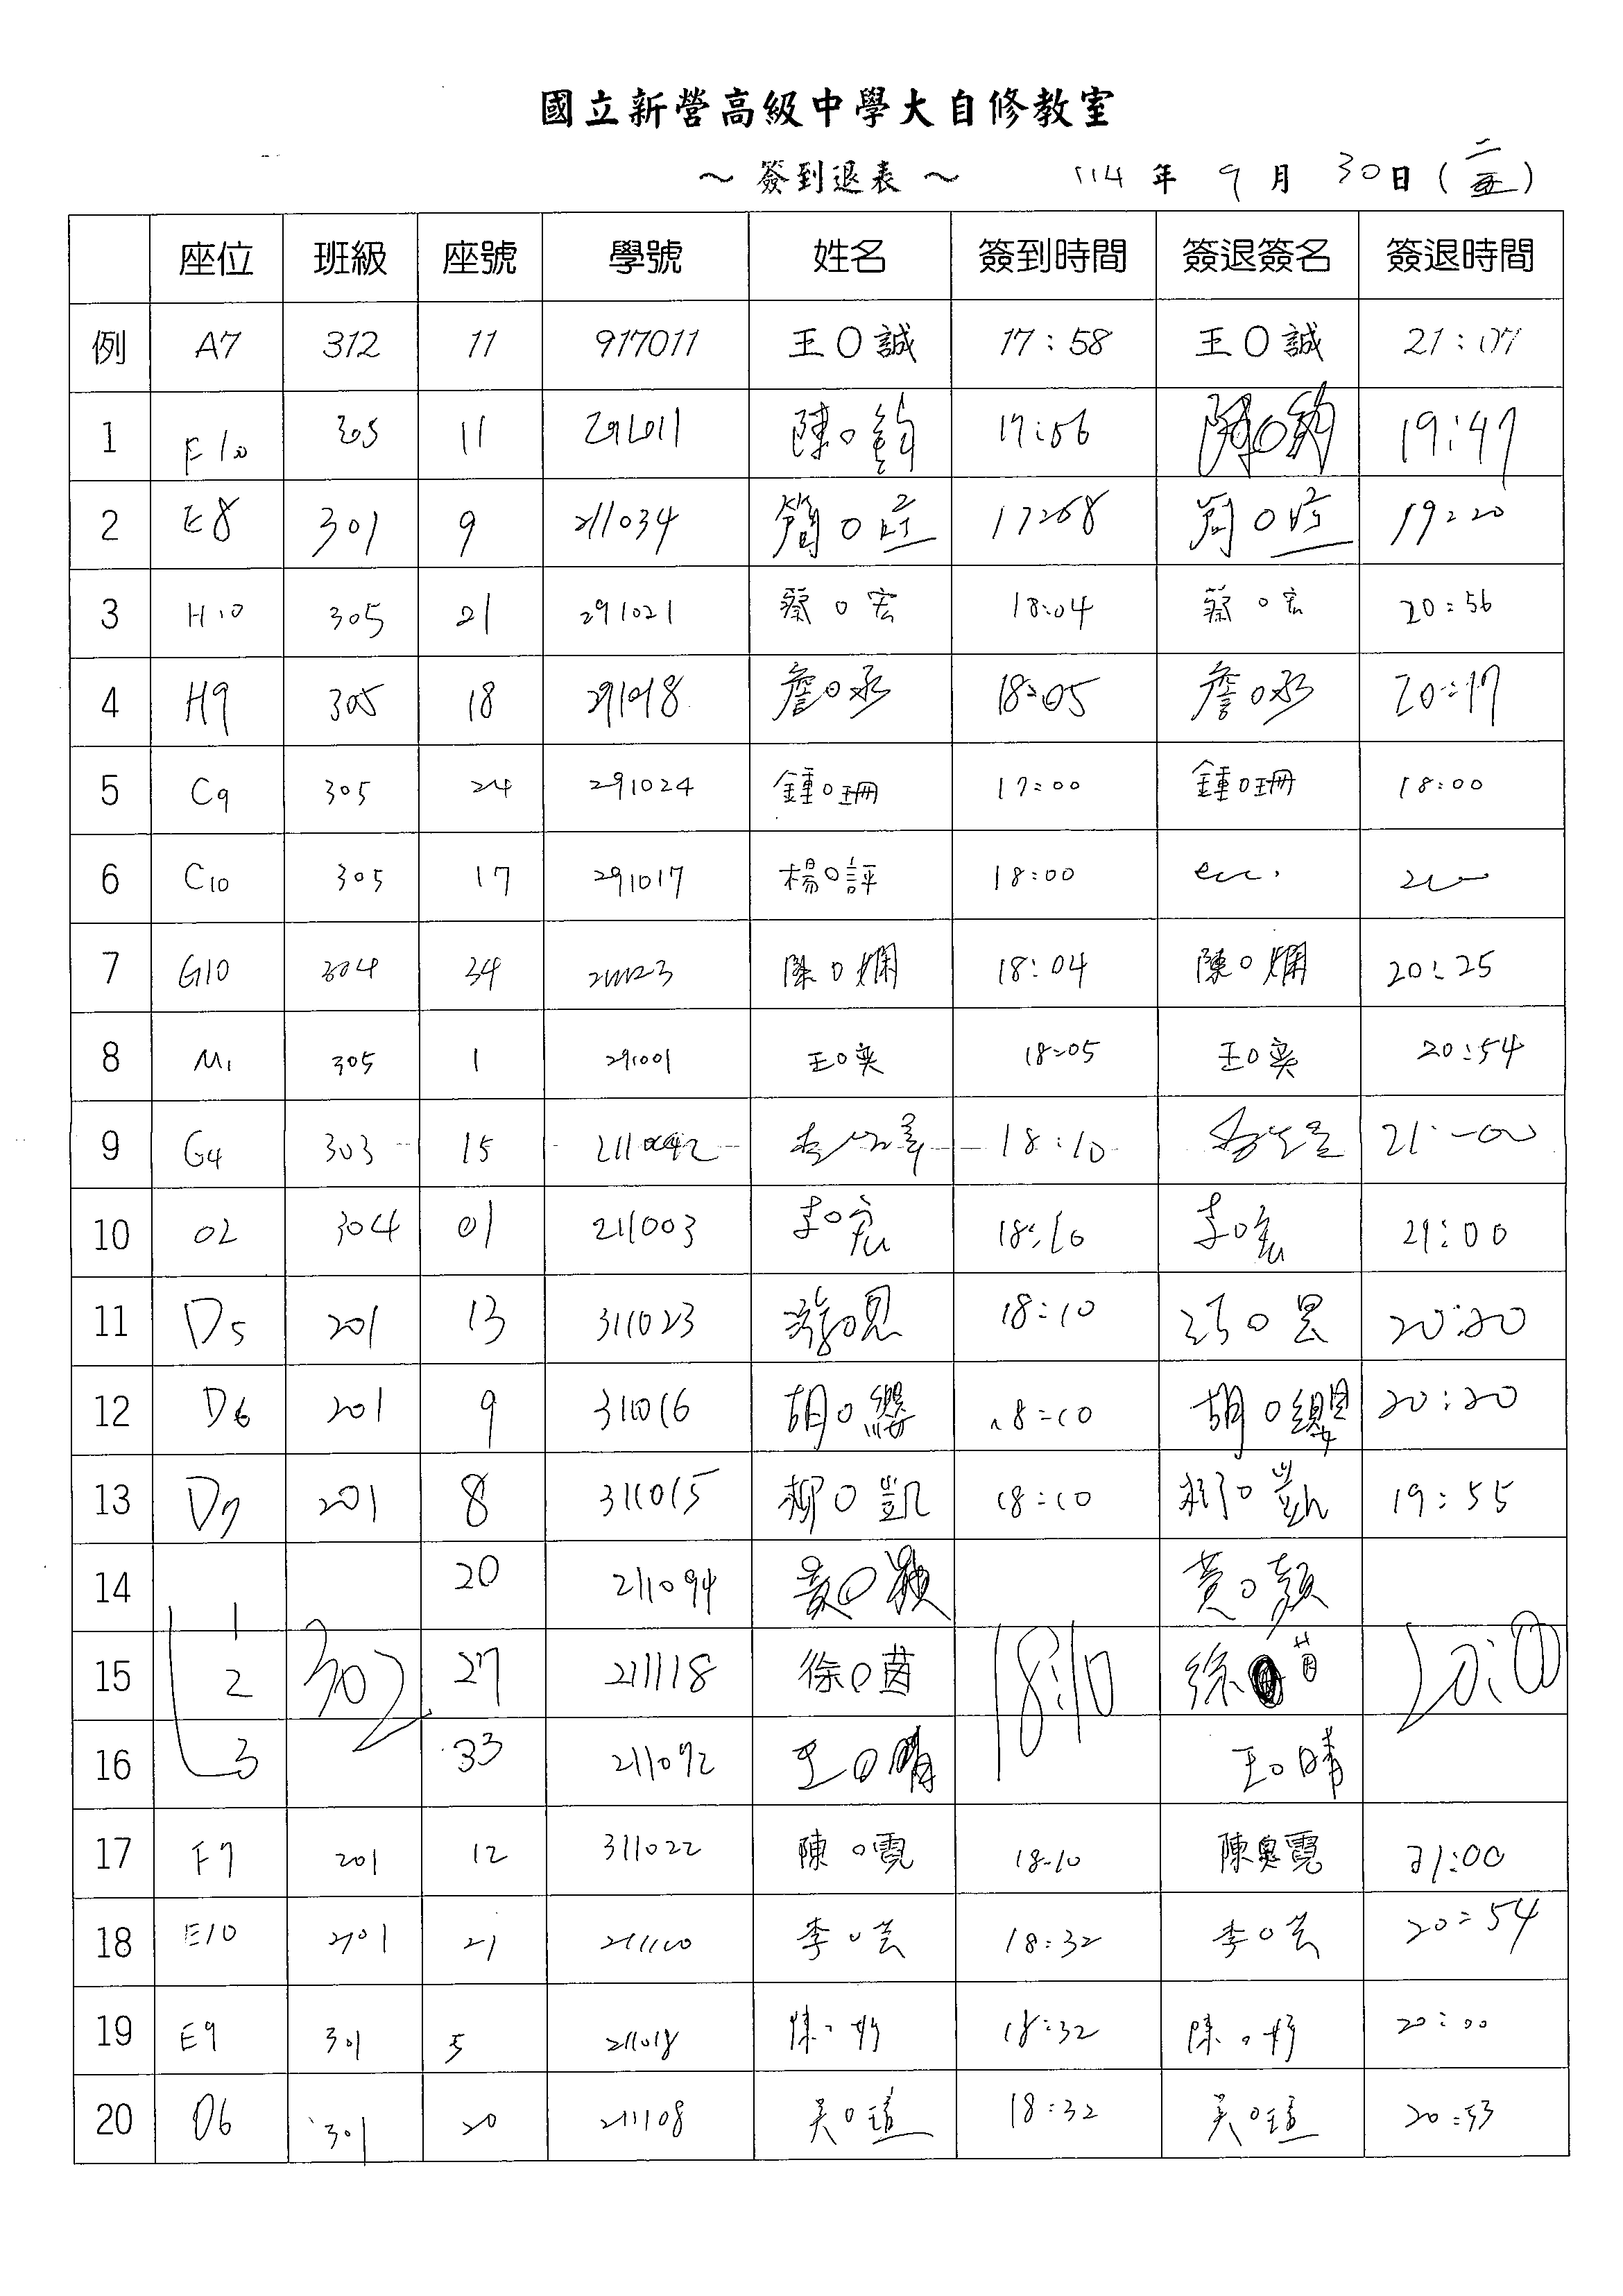 國立新營高級中學大自修教室
～ 簽到退表 ～ 114 年 9 月 30 日 (二)
座位 班級 座號 學號 姓名 簽到時間 簽退簽名 簽退時間
例 A7 312 11 917011 王〇誠 17:58 王〇誠 21:07
1 F10 305 11 291011 陳〇鈞 17:56 陳〇鈞 19:47
2 E8 301 9 211034 簡〇 簡〇 19:20
3 H10 305 21 291021 蔡〇宏 18:04 蔡〇宏 20:56
4 H9 305 18 291018 詹〇丞 18:05 詹〇丞 20:17
5 C9 305 24 291024 鍾〇珊 17:00 鍾〇珊 18:00
6 C10 305 17 291017 楊〇評 18:00
7 G10 304 34 陳〇嫻 18:04 陳〇嫻 20:25
8 M1 305 1 291001 王〇奕 18:05 王〇奕 20:54
9 G4 303 15 18:10 21:00
10 O2 304 01 211003 李〇宏 18:10 李〇宏 21:00
11 D5 201 13 311023 游〇恩 18:10 游〇恩 20:20
12 D6 201 9 311016 胡〇纓 18:10 胡〇纓 20:20
13 D7 201 8 311015 柳〇凱 18:10 柳〇凱 19:55
14 1 20 211094 黃〇穎 黃〇穎
15 2 302 27 211118 徐〇茵 18:10 徐〇茵 20:00
16 3 33 211092 王〇晴 王〇晴
17 F7 201 12 311022 陳〇霓 18:10 陳奧霓 21:00
18 E10 21 李〇芸 18:32 李〇芸 20:54
19 E9 301 5 211018 陳〇妤 18:32 陳〇妤 20:00
20 D6 301 20 211108 吳〇 18:32 吳〇 20:53